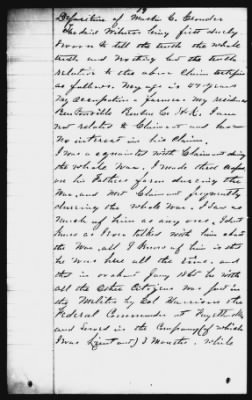 19
Deposition of Martin C.
Said Witness being first duly
sworn to tell the truth the whole
truth and nothing but the truth
relative to the above Claim testifies
as follows. My age is 49 years
My occupation a farmer. My residence
Bentonville Benton Co. Ark. I am
not related to Claimant and have
no interest in his Claim.
I was acquainted with Claimant during
the whole War. I made three crops
on his Fathers farm during the
War, and met Claimant frequently
during the whole War. I saw as
much of him as any one, I dont
know as I ever talked with him about
the War, all I know of him is that
he was here all the time, and
that is in about Jany 1865 he with
all the other Citizens was put in
the Militia by Col Harrison the
Federal Commander at Fayetteville
and served in the Company (of which
I was Lieutenant) 3 Months. While